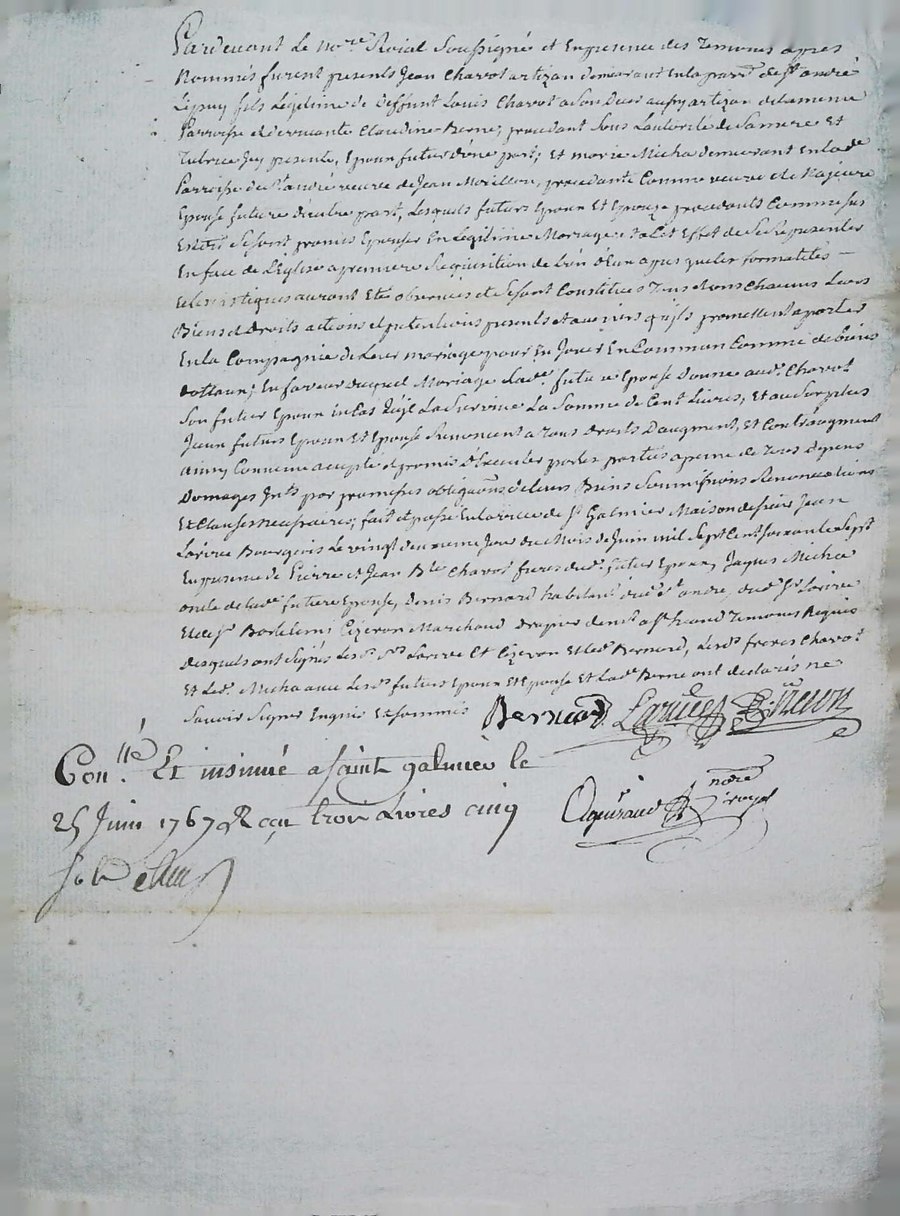 Pardevant Le no.re Roial Soussigné et En presence des Temoins apres
Nommés furent presents Jean Chavot artizan demeurant En la parr.e de s.t andré
Lepuy fils Légitime de Deffunt Louis Chavot a son Deces aussy artizan de la meme
Parroisse et vivante Claudine Berne, procedant Sous Lautorité de Sa mere Et
Tutrice Icy presente, Epoux futur d'une part; Et marie Micha demeurant En lad.e
Parroisse de s.t andré veuve de Jean Morillon, procedante Comme veuve et Majeure
Epouse future d'autre part, Lesquels futurs Epoux Et Epouze procedants Comme sus
Est dit Se sont promis Epouser En Légitime Mariage, a Cet Effet de Se Représenter
En face de L'Eglise a premiere Requisition de L'un d'Eux apres que les formalités
Eclesiastiques auront Eté observées et Se sont Constitués Tous et uns Chacuns Leurs
Biens et Droits actions et pretentions presents et avenirs qu'ils promettent aporter
En la Compagnie de Leur mariage pour En Jouir En Commun Comme de biens
dottaux; En faveur duquel Mariage Lad.e future Epouse Donne aud.t Chavot
Son futur Epoux En Cas qu'il La Survive La Somme de Cent Livres, Et au Surplus
futurs Epoux Et Epouse Renoncent a Tous Droits D'augment, Et Contraugment
ainsy Convenu accepté et promis Executer par les parties a peine de Tous depens
Domages Int.s par promesses obligaons de leurs Biens Soumissions Renonciations
Et Clauses necessaires; fait et passé En la ville de S.t Galmier Maison de sieur Jean
Larive Bourgeois Le vingt deuxieme Jour du Mois de Juin mil Sept Cent Soixante Sept
En presence de Pierre et Jean B.te Chavot freres dud.t futur Epoux, Jaques Micha
oncle de lad.e future Epouse, Denis Bernard habitant dud.t s.t andré, dud.t S.r Larive
Et de S.r Bartelemi Cizeron Marchand drapier dem.t a s.t Témoins Requis
desquels ont Signés Les d.s S.rs Larive Et Cizeron et led.t Bernard, Lesd.s freres Chavot
Et Led.t Micha avec Lesd.s futurs Epoux Et Epouse Et Lad.e Berne ont declarés ne
Savoir Signer Enquis Et Sommés Bernard Larive Cizeron
Con.llé Et insinué a saint galmier le
25 Juin 1767 R çu trois Livres cinq
not.re royal